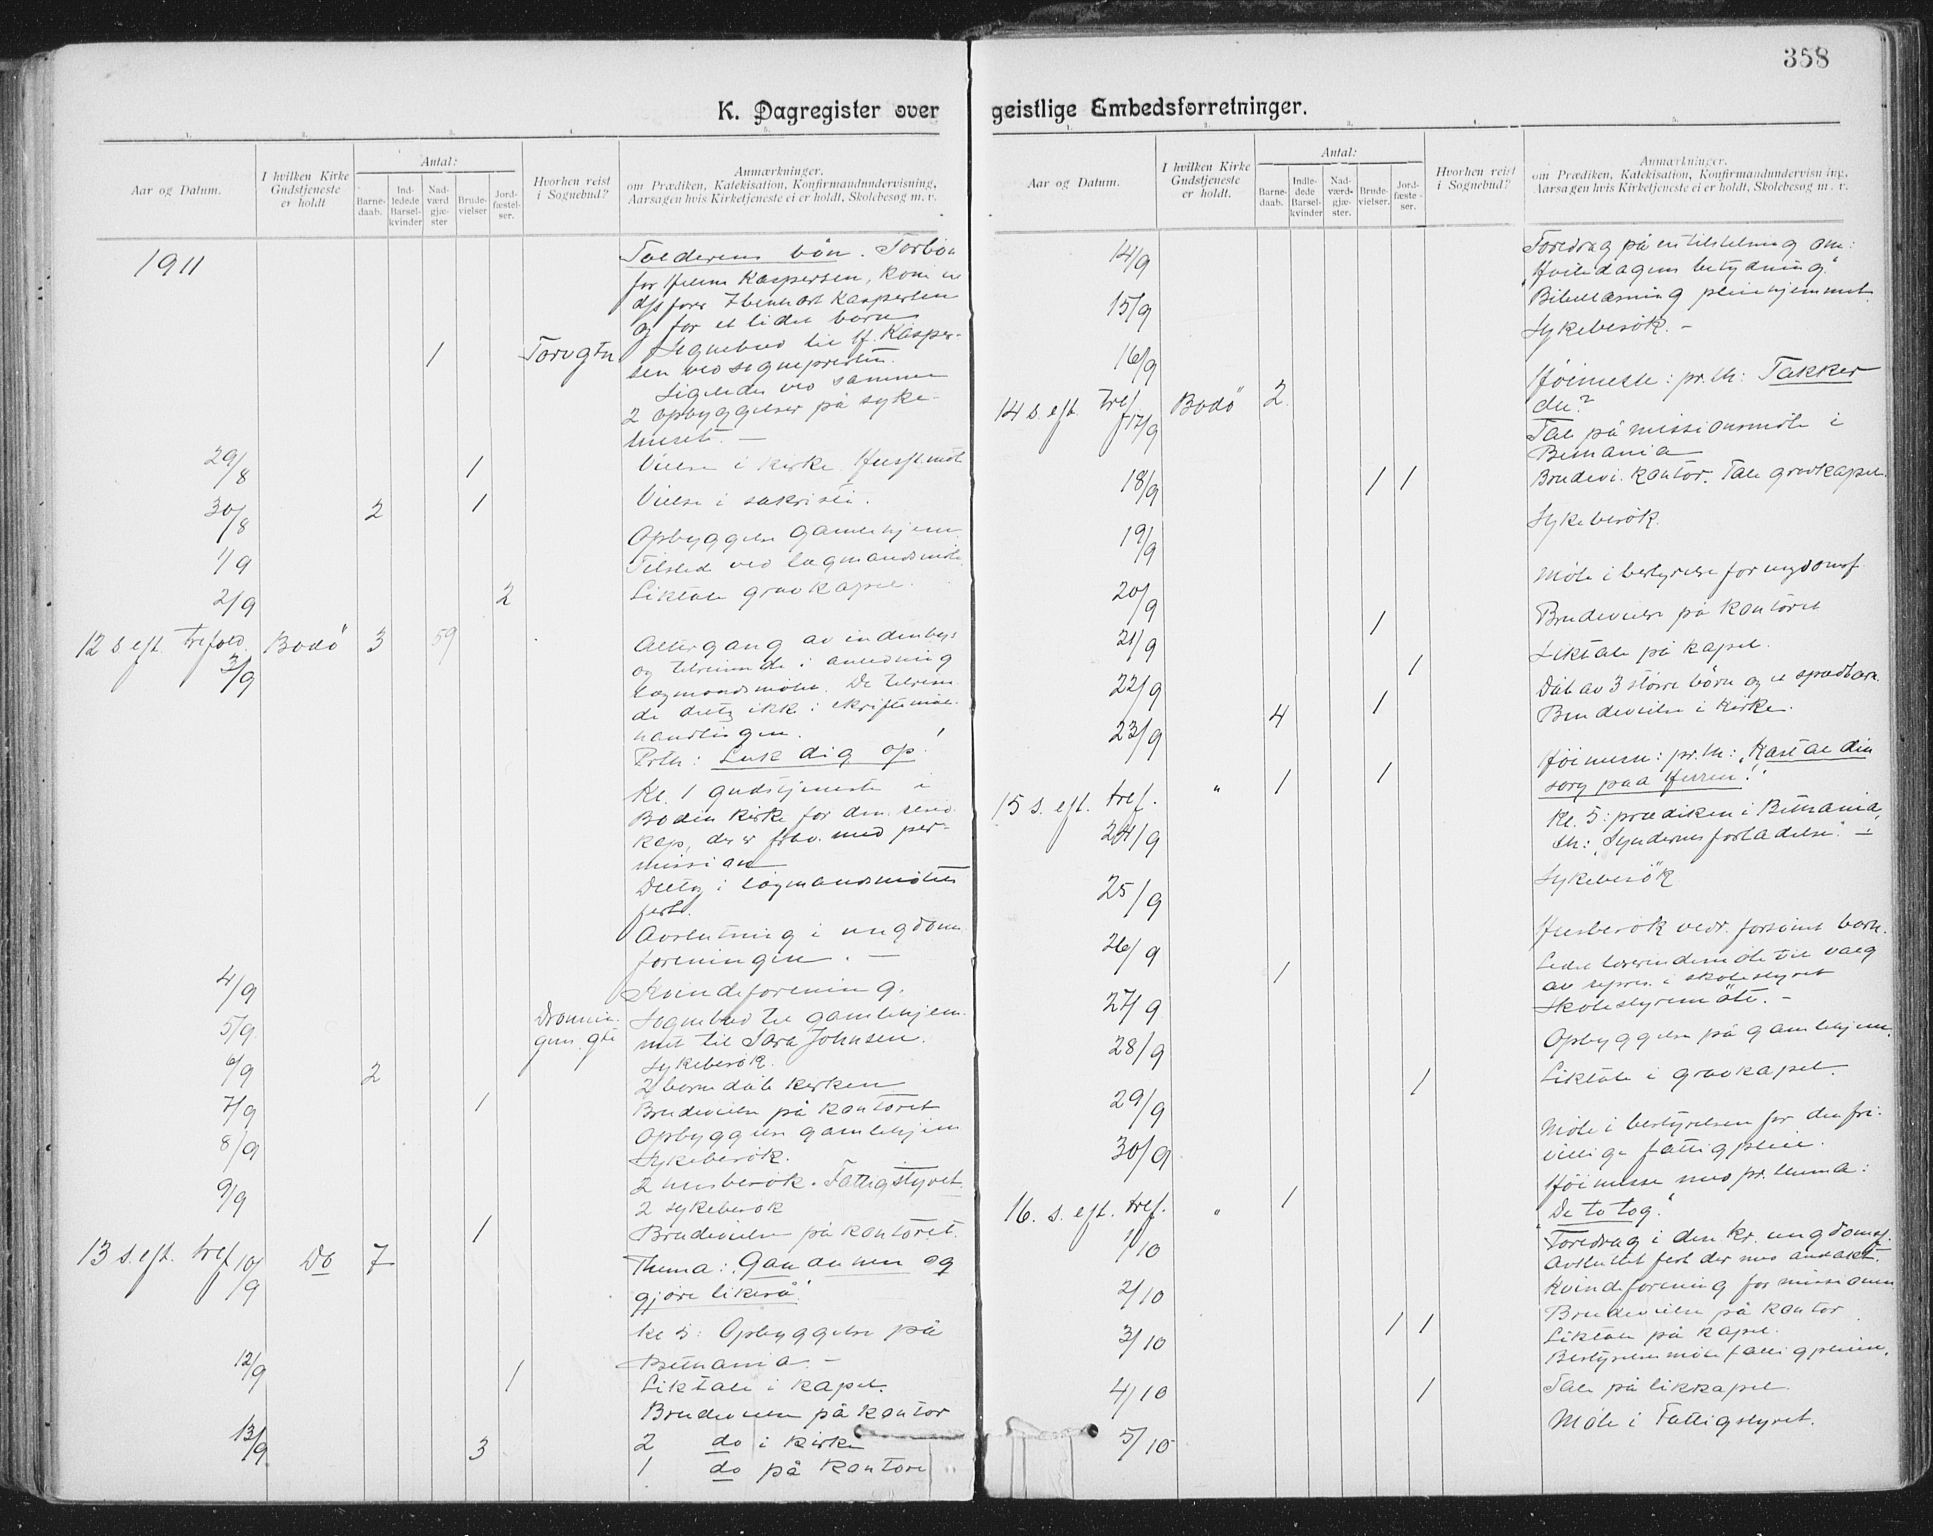 358
K. Dagregister over geistlige Embedsforretninger.
1. 2. 3. 4. 5.
Aar og Datum.
I hvilken Kirke Gudstjeneste er holdt
Antal:
Barnedaab.
Indledede Barselkvinder
Nadværdgjæster
Brudevielser
Jordfæstelser.
Hvorhen reist i Sognebud?
Anmærkninger.
om Prædiken, Katekisation, Konfirmandundervisning,
Aarsagen hvis Kirketjeneste ei er holdt, Skolebesøg m. v.
1911
Tolderens bön. Forbön
Kaspersen, kom
Kaspersen
og for et lidet barn
1 Torvgtn Sognebud til H. Kasper-
sen ved sognepresten.
Ligeledes ved samme
2 opbyggelser på syke-
huset. —
29/8 1 Vielse i kirke.
30/8 2 1 Vielse i sakristi.
1/9 Opbyggelse gamlehjem
Tilsted ved lægmandsmöte
2/9 2 Liktale gravkapel.
12 s eft. trefold. 3/9 Bodö 3 59 Altergang av indenbys
og tilreisende i anledning
lægmandsmötet. De tilreisen-
de deltog ikke i skriftemåls-
handlingen.
Prth: Luk dig op!
Kl. 1 gudstjeneste i
Bodin kirke for
med per-
mission
Deltog i lægmandsmötets
fest.
Avslutning i ungdoms
foreningen. —
4/9 Kvindeforening.
5/9 Dronnin-
gens gte Sognebud til gamlehjem-
met til Sara Johnsen.
6/9 Sykebesök.
2 2 barnedåb kirken
7/9 1 Brudevielse på kontoret
Opbyggelse gamlehjem
8/9 Sykebesök.
9/9 2 husbesök. Fattigstyret
2 sykebesök
1 Brudevielse på kontoret.
13 s. eft. tref. 10/9 Do 7 Thema: "Gaa du hen og
gjöre likeså"
Kl 5: Opbyggelse på
Betania. —
12/9 1 Liktale i kapel.
Brudevielse på kontor
13/9 3 2 do i kirke
1 do på kontoret
1. 2. 3. 4. 5.
Aar og Datum.
I hvilken Kirke Gudstjeneste er holdt.
Antal:
Barnedaab.
Indledede Barselkvinder
Nadværdgjæster.
Brudevielser.
Jordfæstelser.
Hvorhen reist i Sognebud?
Anmærkninger.
om Prædiken, Katekisation, Konfirmandundervisning,
Aarsagen hvis Kirketjeneste ei er holdt, Skolebesøg m. v.
14/9 Foredrag på en tilstelning om:
"Hviledagens betydning"
15/9 Bibellæsning pleiehjemmet
Sykebesök. —
16/9
14 s. eft. tref. 17/9 Bodö 2 Höimesse: pr. th: Takker
du?
Tale på missionsmöte i
Betania
18/9 1 1 Brudevi. kontor. Tale gravkapel.
19/9 Sykebesök.
20/9 Möte i bestyrelse for ungdomsf.
21/9 1 Brudevielse på kontoret
22/9 1 Liktale på kapel.
23/9 4 1 Dåb av 3 större börn og et spædbarn.
Brudevielse i kirke.
15 s. eft. tref. 24/9 " 1 1 Höimesse: pr. th: "Kast al din
sorg paa Herren!"
Kl. 5: prædiken i Betania,
th: "Syndernes forladelse". —
25/9 Sykebesök
26/9 Husbesök vedr. forsömt barn.
27/9 1 Ledet lærerindemöte til valg
av repræs. i skolestyret
Skolestyremöte. —
28/9 Opbyggelse på gamlehjem.
29/9 1 Liktale i gravkapel.
30/9 Möte i bestyrelsen for den fri-
villige fattigpleie.
16. s. eft. tref. 1/10 " 1 Höimesse med pr. thema:
"De to tog."
Foredrag i den kr. ungdomsf.
Avsluttet fest der med andakt.
2/10 Kvindeforening for missionen
3/10 1 1 Brudevielse på kontor
Liktale på kapel.
Bestyrelsesmöte fattigpleien.
4/10 1 Tale på likkapel.
5/10 Möte i Fattigstyret.